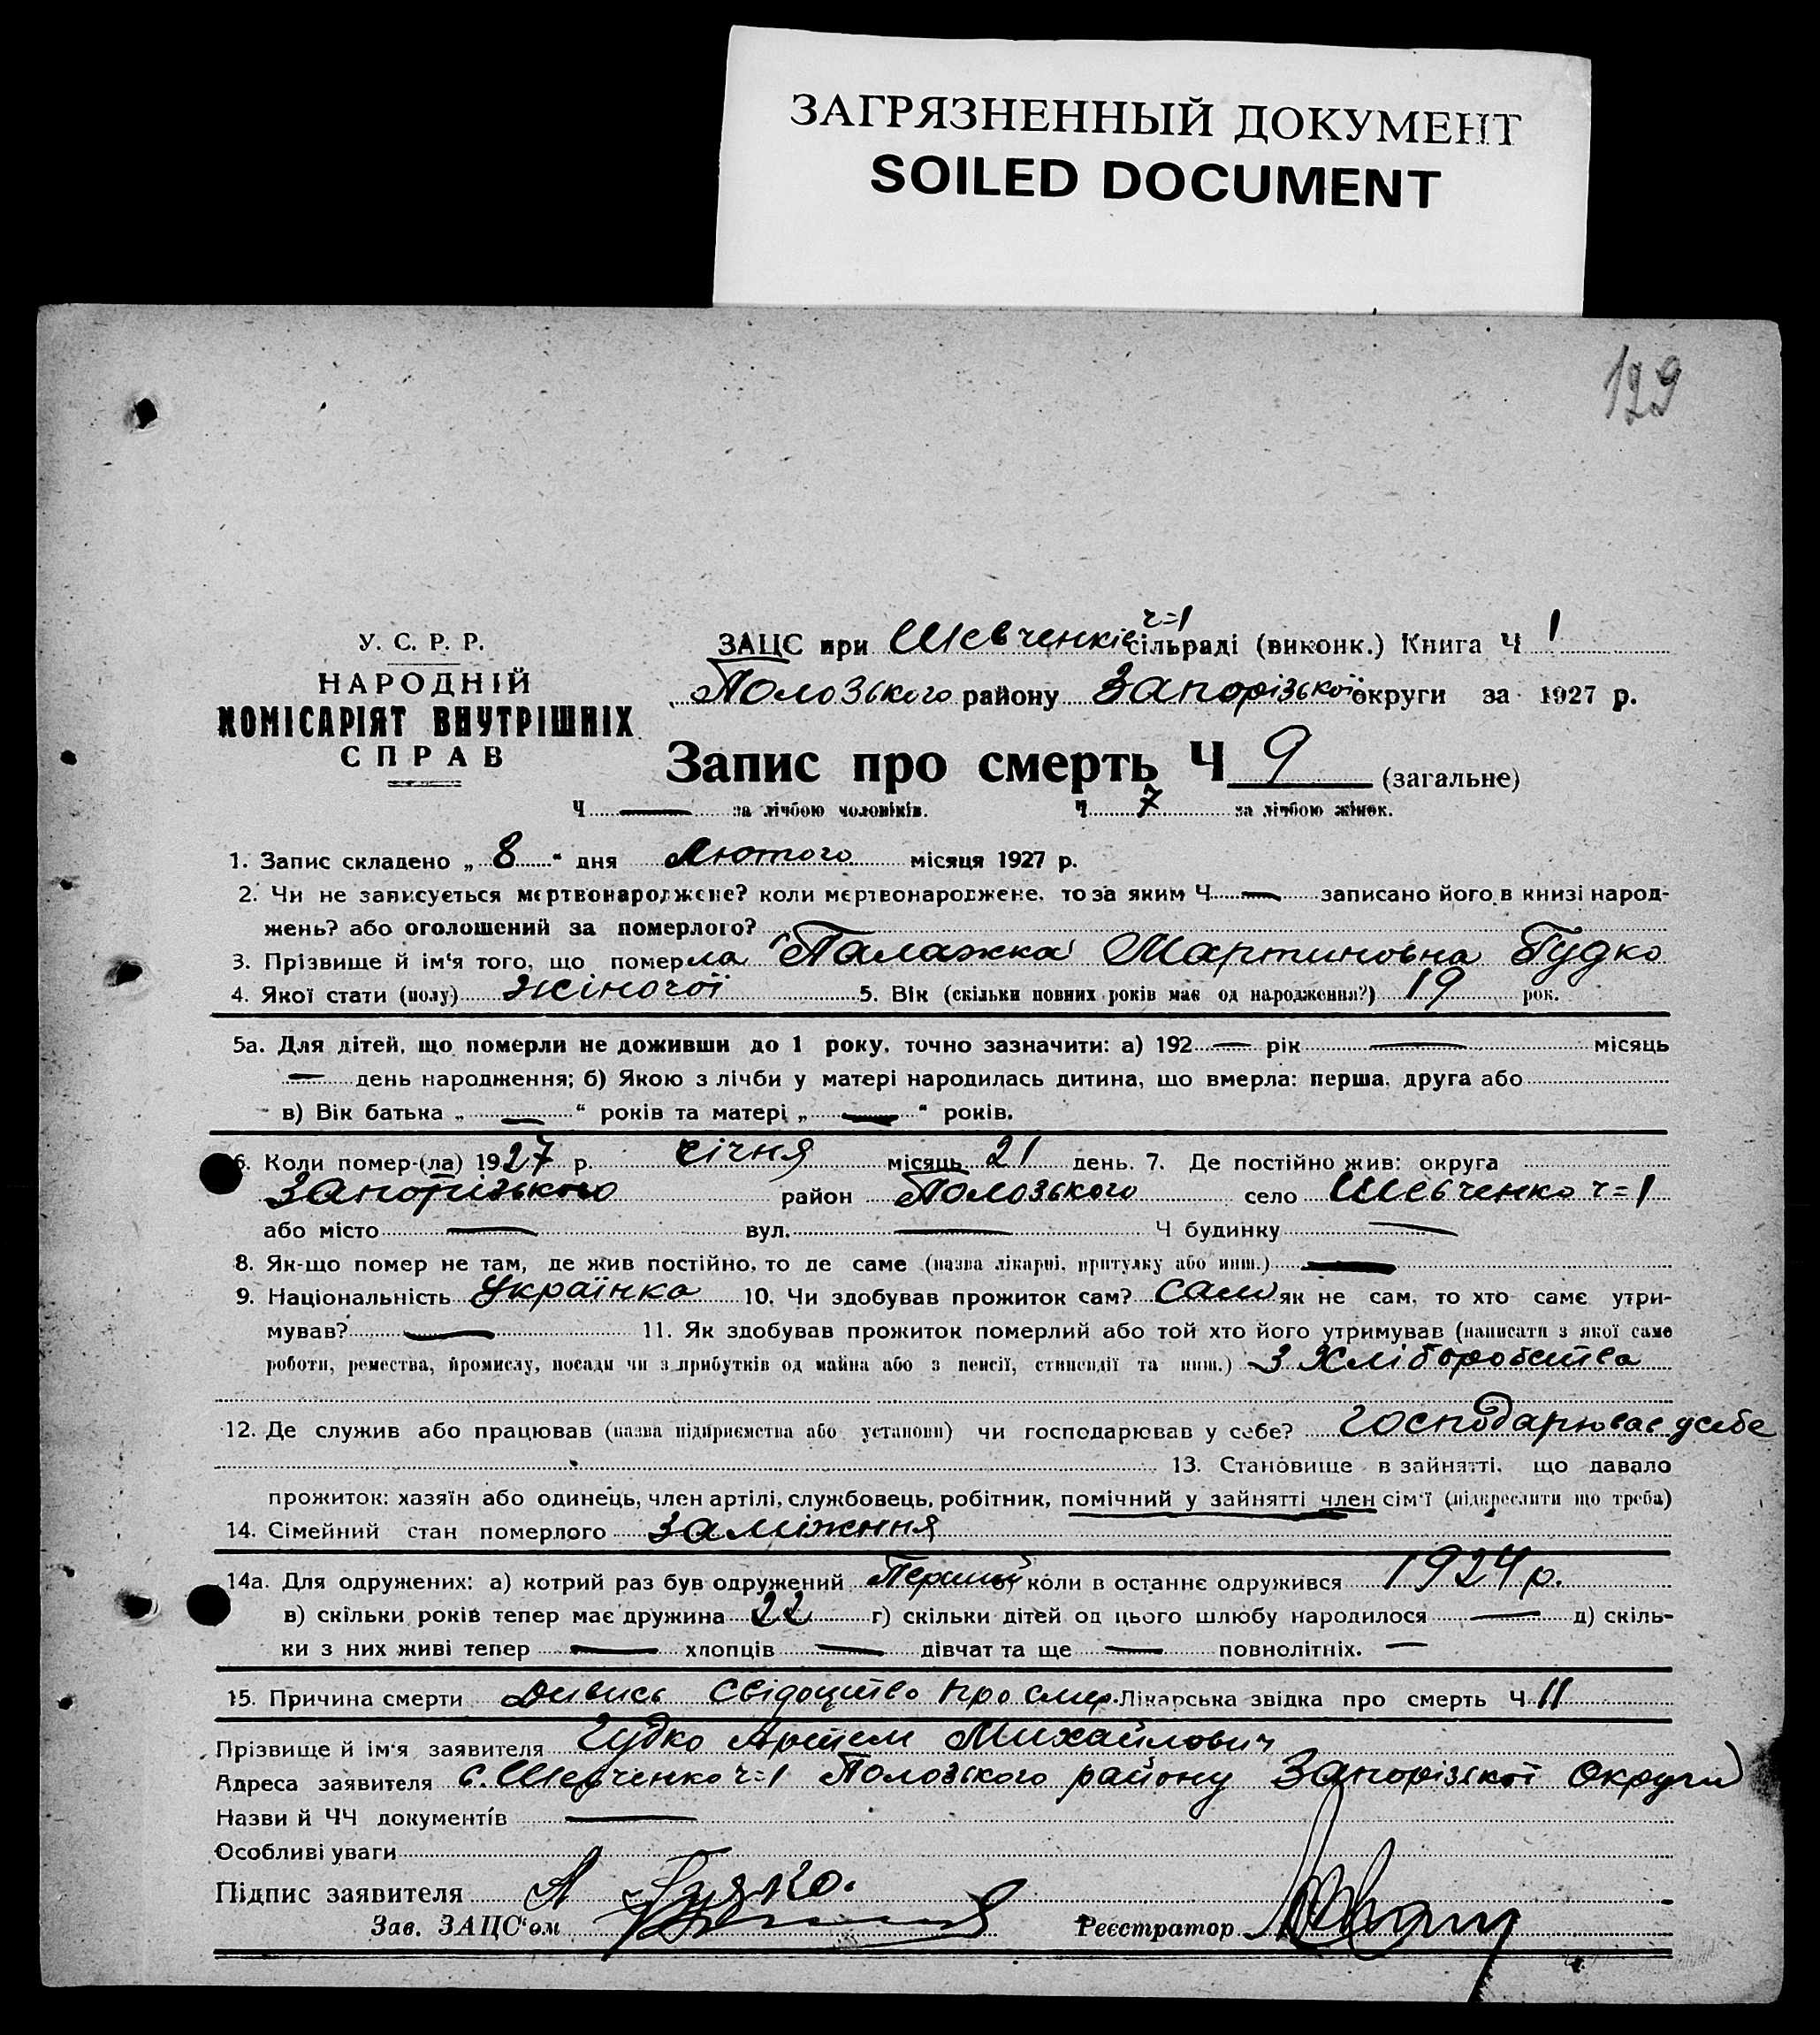 ЗАГРЯЗНЕННЫЙ ДОКУМЕНТ
SOILED DOCUMENT
129
У. С. Р. Р.
НАРОДНІЙ
КОМІСАРІЯТ ВНУТРІШНІХ
СПРАВ
ч=1
ЗАЦС при Шевченків сільраді (виконк.) Книга Ч 1
Полозького району Запорізької округи за 1927 р.
Запис про смерть Ч 9 (загальне)
Ч — за лічбою чоловіків. Ч 7 за лічбою жінок.
1. Запис складено „ 8 “ дня Лютого місяця 1927 р.
2. Чи не записується мертвонароджене? коли мертвонароджене, то за яким Ч — записано його в книзі народ-
жень? або оголошений за померлого?
3. Прізвище й ім'я того, що померла Палажка Мартиновна Гудко
4. Якої стати (полу) жіночої 5. Вік (скільки повних років має од народження?) 19 рок.
5а. Для дітей, що померли не доживши до 1 року, точно зазначити: а) 192 — рік — місяць
— день народження; б) Якою з лічби у матері народилась дитина, що вмерла: перша, друга або
в) Вік батька „ — “ років та матері „ — “ років.
6. Коли помер-(ла) 1927 р. січня місяць 21 день. 7. Де постійно жив: округа
Запорізького район Полозького село Шевченко ч=1
або місто — вул. — Ч будинку —
8. Як-що помер не там, де жив постійно, то де саме (назва лікарні, притулку або инш.) —
9. Національність Українка 10. Чи здобував прожиток сам? Сам як не сам, то хто саме утри-
мував? — 11. Як здобував прожиток померлий або той хто його утримував (написати з якої саме
роботи, ремества, промислу, посади чи з прибутків од майна або з пенсії, стипендії та инш.) З Хліборобства
12. Де служив або працював (назва підприємства або установи) чи господарював у себе? господарював у себе
13. Становище в зайнятті, що давало
прожиток: хазяїн або одинець, член артілі, службовець, робітник, помічний у зайнятті член сім'ї (підкреслити що треба)
14. Сімейний стан померлого заміжння
14а. Для одружених: а) котрий раз був одружений Перший б) коли в останнє одружився 1924 р.
в) скільки років тепер має дружина 22 г) скільки дітей од цього шлюбу народилося — д) скіль-
ки з них живі тепер — хлопців — дівчат та ще — повнолітніх. —
15. Причина смерти Дивись Свідоцтво про смер. Лікарська звідка про смерть Ч 11
Прізвище й ім'я заявителя Гудко Артем Михайлович
Адреса заявителя с. Шевченко ч=1 Полозького району Запорізької Округи
Назви й ЧЧ документів —
Особливі уваги
Підпис заявителя А Гудко.
Зав. ЗАЦС'ом Реєстратор